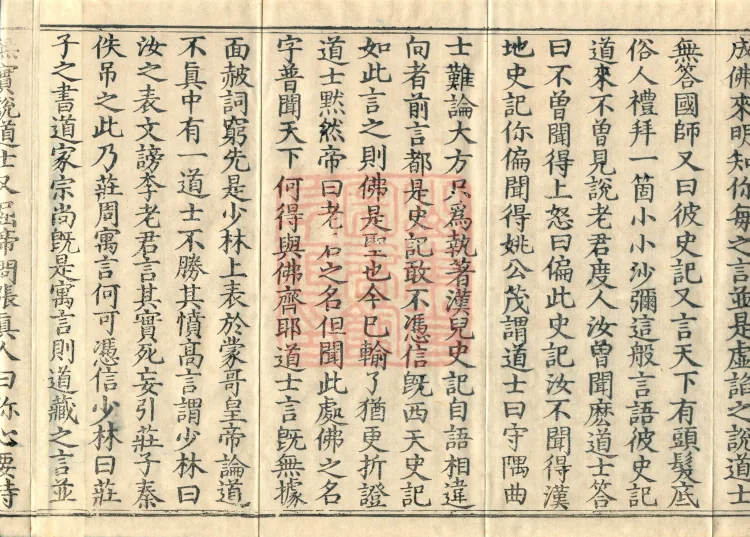 成佛來明知你每之言並是虛謠之說道士
無答國師又曰彼史記又言天下有頭髮底
俗人禮拜一箇小小沙彌這般言語彼史記
道來不曾見說老君度人汝曾聞麽道士答
曰不曾聞得上怒曰偏此史記汝不聞得漢
地史記你偏聞得姚公茂謂道士曰守隅曲
士難論大方只爲執著漢兒史記自語相違
向者前言都是史記敢不憑信旣西天史記
如此言之則佛是聖也今已輸了猶更折證
道士黙然帝曰老君之名但聞此處佛之名
字普聞天下何得與佛齊耶道士言旣無據
面赧詞窮先是少林上表於蒙哥皇帝論道
不眞中有一道士不勝其憤高言謂少林曰
汝之表文謗李老君言其實死妄引莊子秦
佚吊之此乃莊周寓言何可憑信少林曰莊
子之書道家宗尚旣是寓言則道藏之言並
無實說道士又屈帝問張眞人曰你心要持